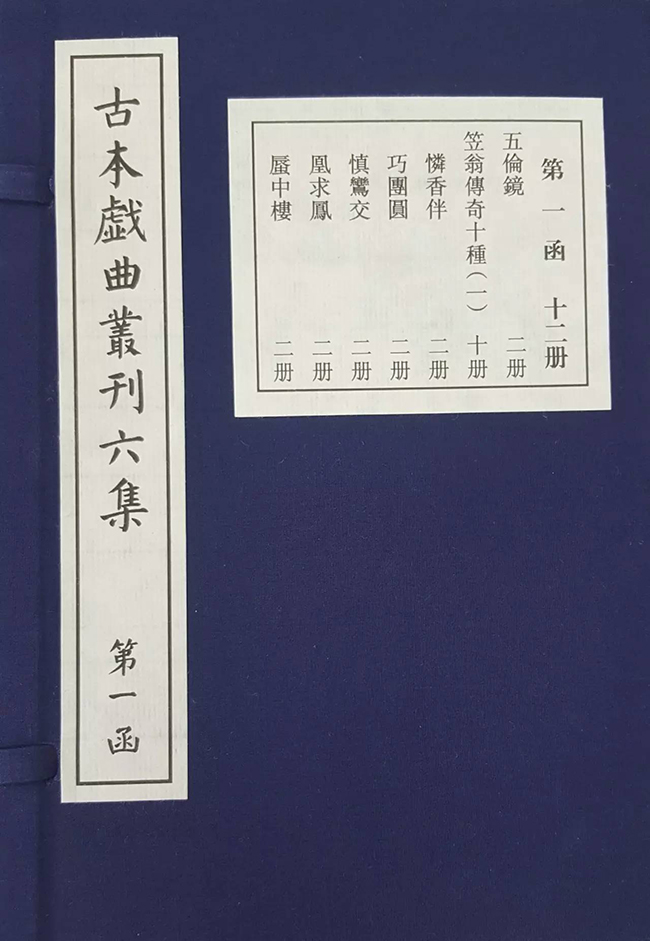 第一函 十二册
五倫鏡 二册
笠翁傳奇十種(一) 十册
憐香伴 二册
巧團圓 二册
慎鸞交 二册
凰求鳳 二册
蜃中樓 二册
古本戯曲叢刊六集 第一函